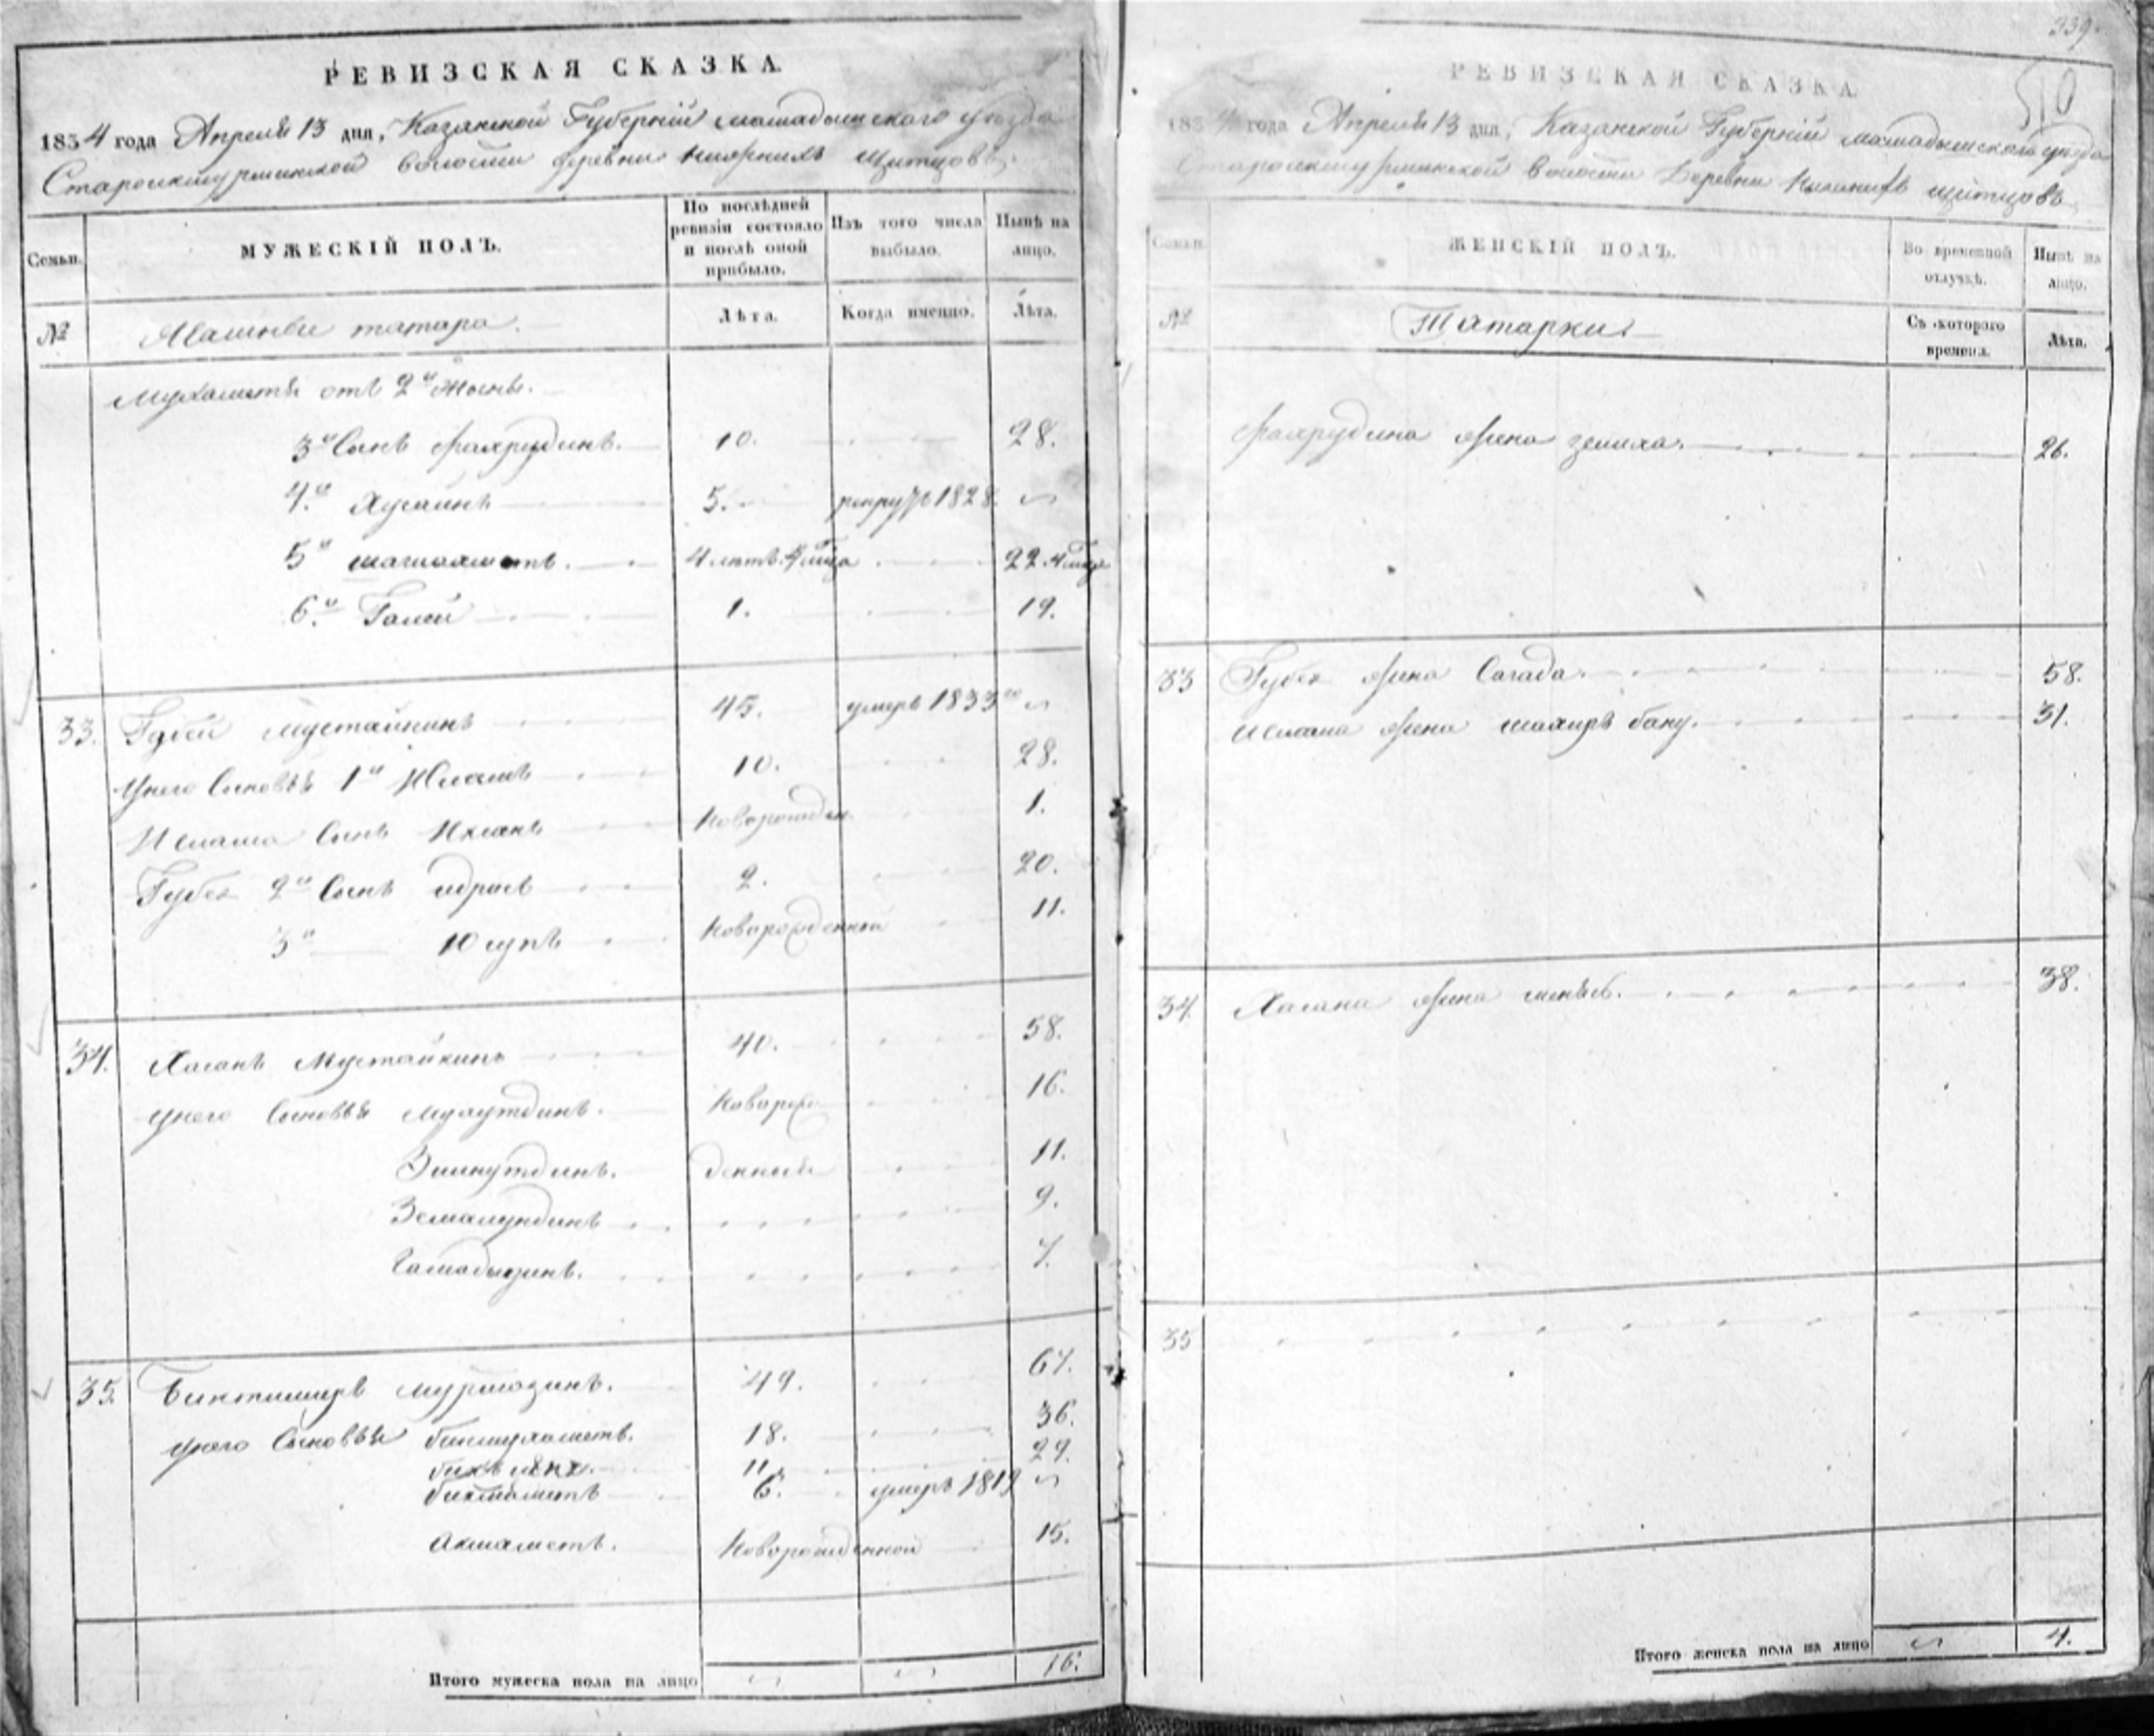 РЕВИЗСКАЯ СКАЗКА
1834 года Апреля 13 дня, Казанской Губернии мамадышского уезда
Староикшурминской волости деревни нижних Шитцовъ
Семьи.
МУЖЕСКІЙ ПОЛЪ.
По послѣдней ревизіи состояло и послѣ оной прибыло.
Изъ того числа выбыло.
Нынѣ на лицо.
№
татара
Лѣта.
Когда именно.
Лѣта.
Мухаметя отъ 2й жены.
3й Сынъ Фахрудинъ. 10. 28.
4й Хусаинъ 5. рекрут 1828
5й шагиахметъ. 4 летъ 22.
6й Галей 1. 19.
33. Губей Мустайкинъ 45. умеръ 1833го
У него Сыновья 1й Исламъ 10. 28.
Ислама Сынъ Ихсанъ Новорожден 1.
Губея 2й Сынъ идрисъ 2. 20.
3й Юсупъ Новорожденной 11.
34. Хасанъ Мустайкинъ 40. 58.
У него Сыновья Мухутдинъ. Новорож 16.
Зиннутдинъ. денныя 11.
Земалутдинъ 9.
7.
35. Биктимиръ Муртозинъ. 49. 67.
У него Сыновья бикмухаметъ. 18. 36.
11. 29.
бикмаметъ 6. умеръ 1819
Ахмаметъ. Новорожденной 15.
Итого мужеска пола на лицо 16.
339.
510
РЕВИЗСКАЯ СКАЗКА
1834 года Апреля 13 дня, Казанской Губернии мамадышского уезда
Староикшурминской волости Деревни Нижних шитцовъ
Семьи.
ЖЕНСКІЙ ПОЛЪ.
Во временной отлучкѣ.
Нынѣ на лицо.
№
Татарки
Съ котораго времени.
Лѣта.
Фахрудина жена 26.
33 Губея жена Сагада. 58.
Ислама жена шахирь бану. 31.
34. Хасана жена 38.
35
Итого женска пола на лицо 4.